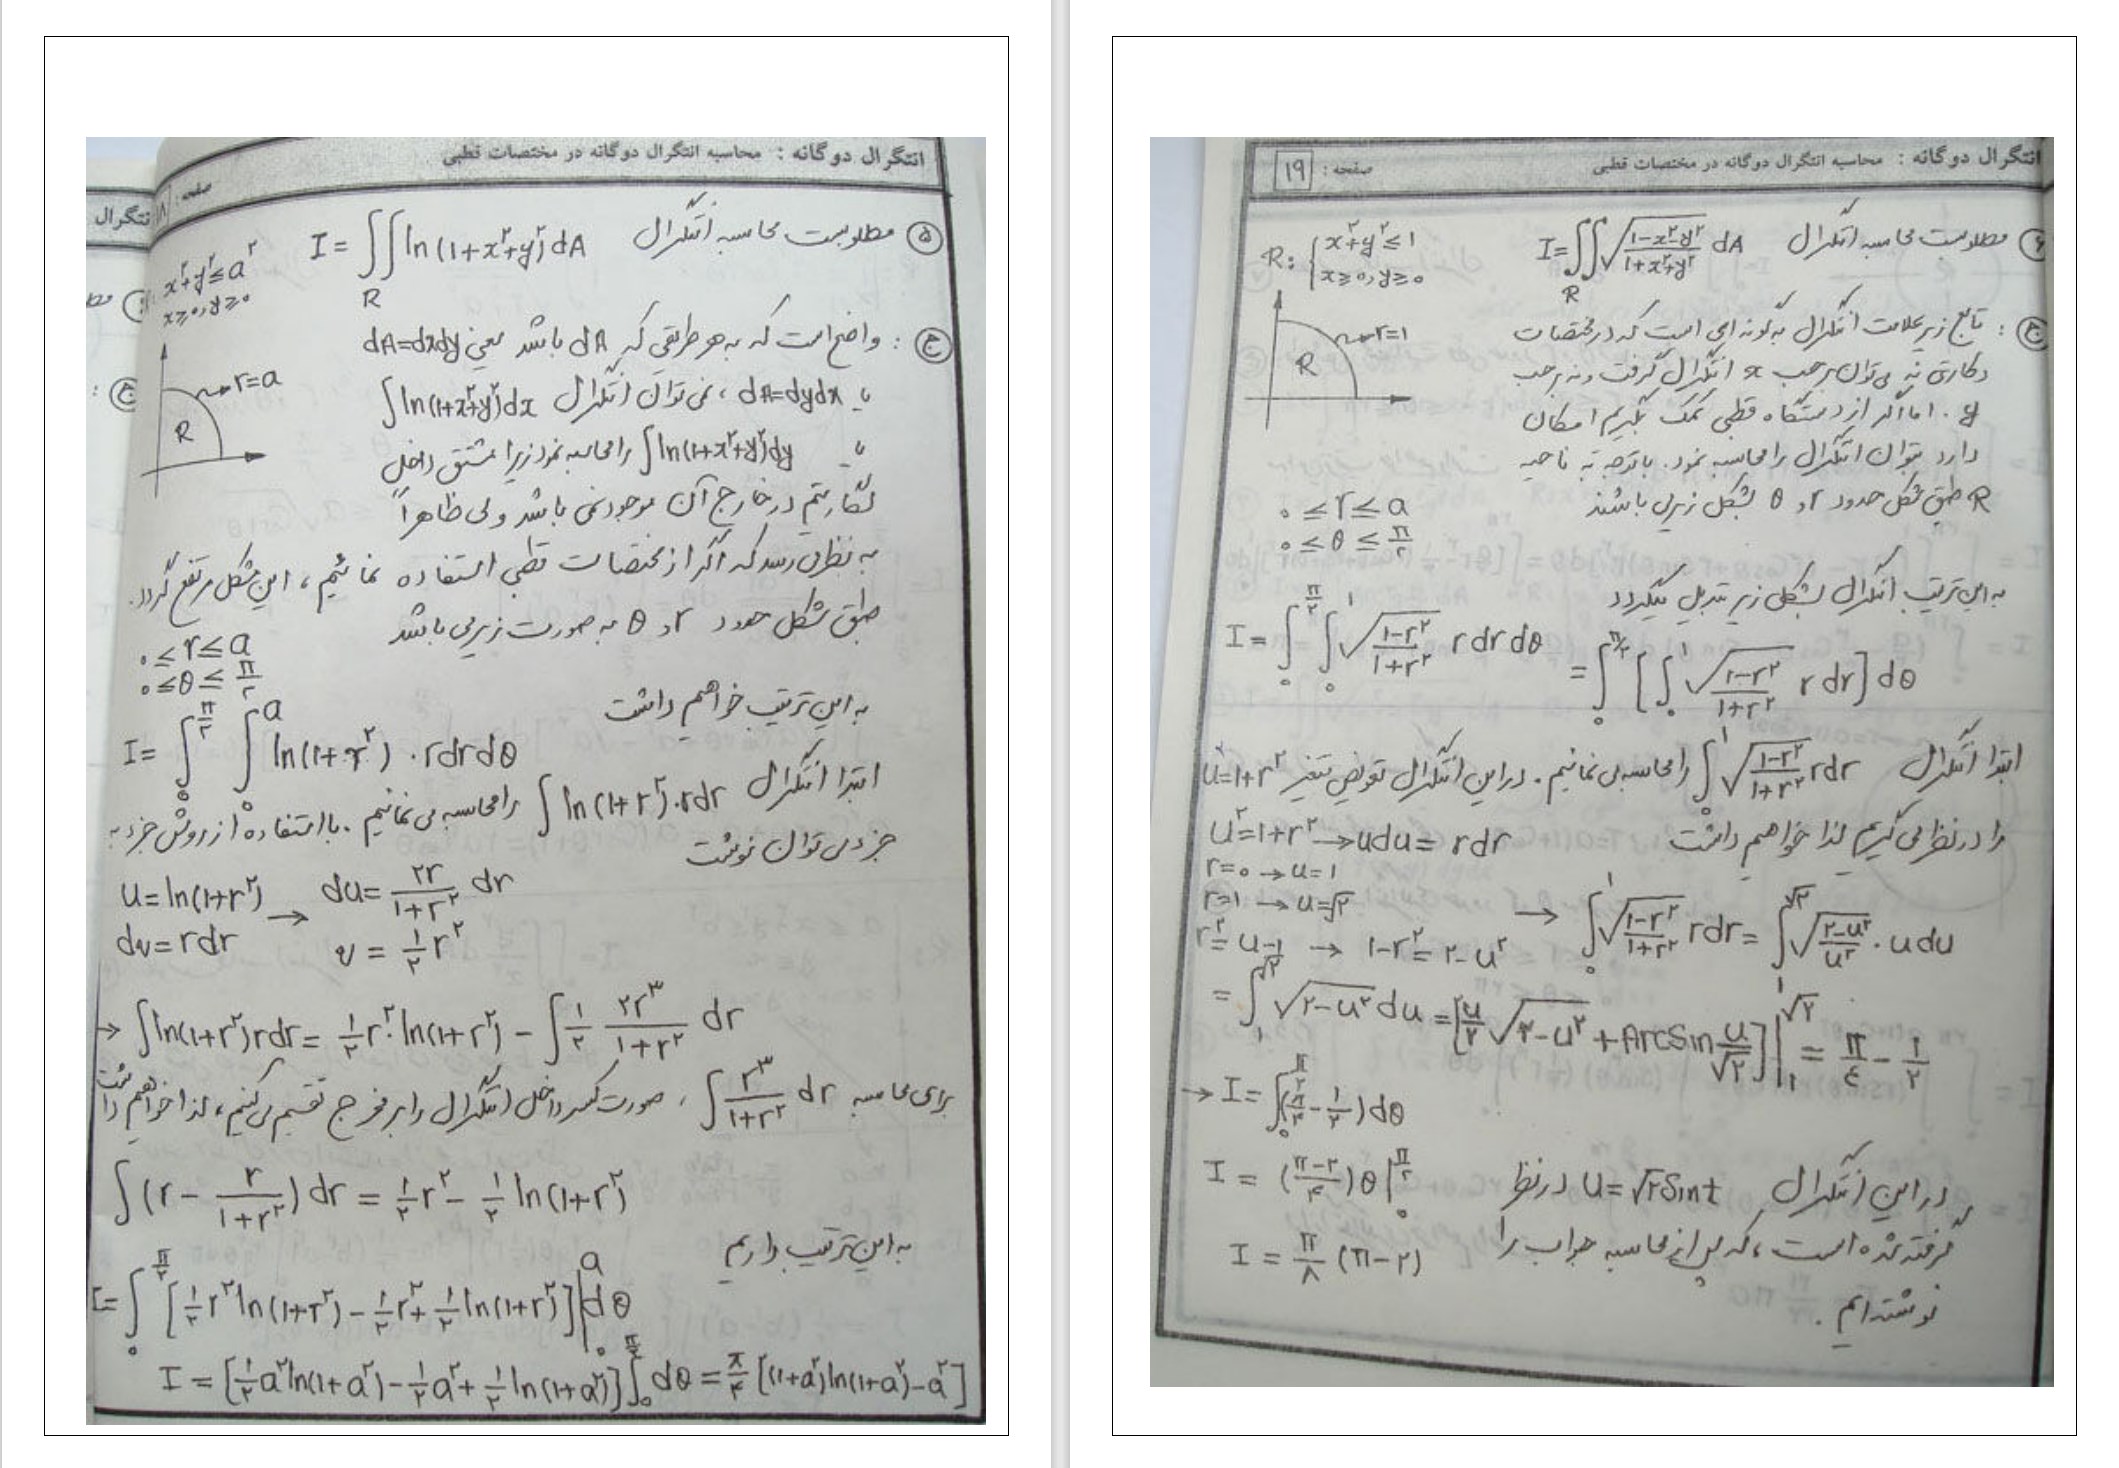 انتگرال دوگانه : محاسبه انتگرال دوگانه در مختصات قطبی
صفحه : ۱۸
⑤ مطلوبست محاسبه انتگرال I = ∬_R ln(1+x²+y²) dA
x²+y² ≤ a²
x ≥ 0, y ≥ 0
ج : واضح است که به هر طریقی که dA باشد یعنی dA=dxdy
r=a
یا dA=dydx ، نمی توان انتگرال ∫ln(1+x²+y²)dx
R
یا ∫ln(1+x²+y²)dy را محاسبه نمود زیرا مشتق داخل
لگاریتم در خارج آن موجود نمی باشد ولی ظاهراً
به نظر می رسد که اگر از مختصات قطبی استفاده نمائیم ، این مشکل مرتفع گردد.
طبق شکل حدود r و θ به صورت زیر می باشد
۰ ≤ r ≤ a
۰ ≤ θ ≤ π/۲
به این ترتیب خواهیم داشت
I = ∫₀^{π/۲} ∫₀^a ln(1+r²) . rdrdθ
ابتدا انتگرال ∫ ln(1+r²).rdr را محاسبه می نمائیم . با استفاده از روش جزء به
جزء می توان نوشت
u = ln(1+r²) → du = ۲r/(1+r²) dr
dv = rdr v = ۱/۲ r²
→ ∫ln(1+r²)rdr = ۱/۲ r². ln(1+r²) − ∫ ۱/۲ ۲r³/(1+r²) dr
برای محاسبه ∫ r³/(1+r²) dr ، صورت کسر داخل انتگرال را بر مخرج تقسیم می کنیم ، لذا خواهیم داشت
∫(r − r/(1+r²)) dr = ۱/۲ r² − ۱/۲ ln(1+r²)
به این ترتیب داریم
I = ∫₀^{π/۲} [۱/۲ r² ln(1+r²) − ۱/۲ r² + ۱/۲ ln(1+r²)]|₀^a dθ
I = [۱/۲ a² ln(1+a²) − ۱/۲ a² + ۱/۲ ln(1+a²)] ∫₀^{π/۲} dθ = π/۴ [(1+a²)ln(1+a²) − a²]
انتگرال دوگانه : محاسبه انتگرال دوگانه در مختصات قطبی
صفحه : ۱۹
⑥ مطلوبست محاسبه انتگرال I = ∬_R √((1−x²−y²)/(1+x²+y²)) dA
R: { x²+y² ≤ 1
x ≥ 0, y ≥ 0
ج : تابع زیر علامت انتگرال به گونه ای است که در مختصات
r=1
دکارتی نه می توان بر حسب x انتگرال گرفت و نه بر حسب
R
y . اما اگر از دستگاه قطبی کمک بگیریم امکان
دارد بتوان انتگرال را محاسبه نمود. با توجه به ناحیه
R طبق شکل حدود r و θ بشکل زیر می باشند
۰ ≤ r ≤ a
۰ ≤ θ ≤ π/۲
به این ترتیب انتگرال بشکل زیر تبدیل میگردد
I = ∫₀^{π/۲} ∫₀^1 √((1−r²)/(1+r²)) rdrdθ = ∫₀^{π/۲} [∫₀^1 √((1−r²)/(1+r²)) rdr] dθ
ابتدا انتگرال ∫₀^1 √((1−r²)/(1+r²)) rdr را محاسبه می نمائیم . در این انتگرال تعویض متغیر u²=1+r²
را در نظر می گیریم لذا خواهیم داشت
u² = 1+r² → udu = rdr
r=۰ → u=1
r=1 → u=√۲
r² = u²−1 → 1−r² = ۲−u²
→ ∫₀^1 √((1−r²)/(1+r²)) rdr = ∫₁^{√۲} √((۲−u²)/u²) . udu
= ∫₁^{√۲} √(۲−u²) du = [u/۲ √(۲−u²) + Arcsin u/√۲]|₁^{√۲} = π/٤ − ۱/۲
→ I = ∫₀^{π/۲} (π/۴ − ۱/۲) dθ
I = ((π−۲)/۴) θ|₀^{π/۲}
در این انتگرال u=√۲ Sint در نظر
گرفته شده است ، که پس از محاسبه جواب را
I = π/۸ (π−۲)
نوشته ایم .